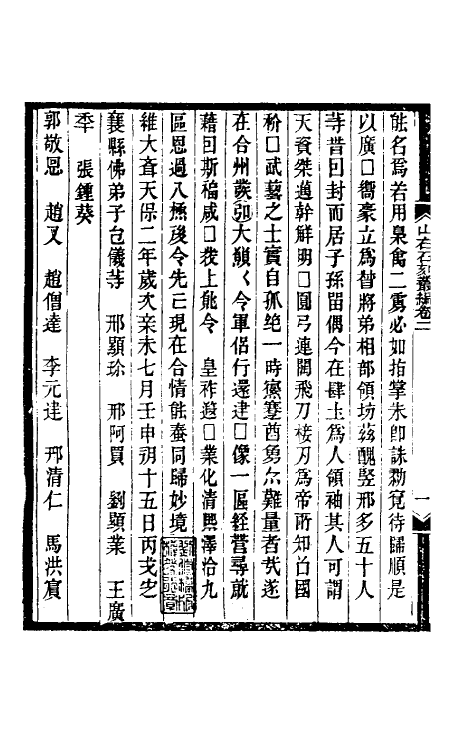 能名爲若用臬禽二虜必如指掌朱卽誅勦寬待歸順是
以廣□衙豪立爲督將弟相部領坊茲醜竪邢多五十人
䓁昔因封而居子孫留偶今在肆土爲人領袖其人可謂
天資桀邁幹鮮明□圓弓連闊飛刀棱刃爲帝所知㠯國
𥘵□武藝之士實自孤绝一時㾕蹇酋勇尒難量者㦲遂
在合州蕀卽大嶺〱今軍侣行還建□像一區鋞營尋就
藉回斯福咸□㧞上能令　皇祚遐□業化清熙澤洽九
區恩過八㮣㳄令先亡現在合情能蚕同歸妙境
維大斉天保二年歲次辛未七月壬申朔十五日丙戌㝎
襄縣佛弟子㐌儀䓁　邢顯珎　邢阿買　劉顯業　王廣
秊　張鍾葵
郭敬恩　趙叉　趙僧達　李元達　邢清仁　馬洪賔
山右石刻叢編卷二
一